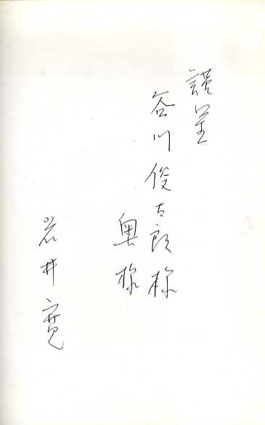 謹呈
谷川俊太郎様
奥様
岩井寛